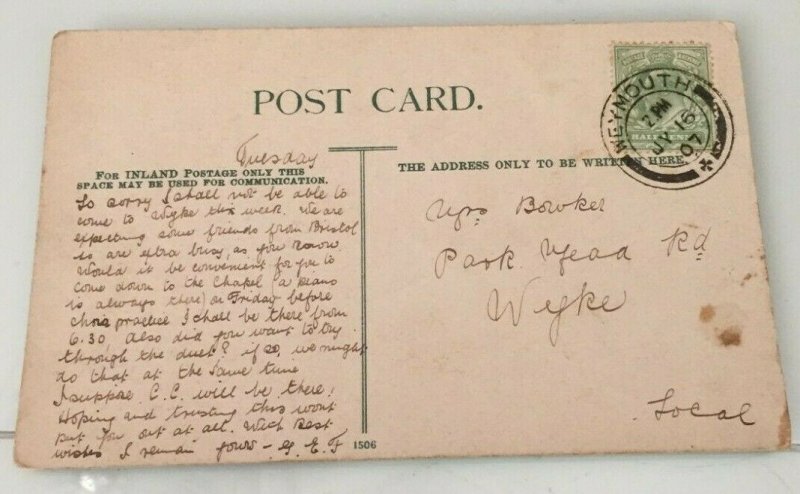 POST CARD.
WEYMOUTH
2 PM
JY 16
07
HALFPENNY
FOR INLAND POSTAGE ONLY THIS
SPACE MAY BE USED FOR COMMUNICATION.
THE ADDRESS ONLY TO BE WRITTEN HERE.
Tuesday
So sorry I shall not be able to
come to Wyke this week. We are
expecting some friends from Bristol
so are extra busy, as you know
Would it be convenient for you to
come down to the Chapel (a piano
is always there) on Friday before
choir practice I shall be there from
6.30. Also did you want to try
through the duet? if so, we might
do that at the same time
I suppose C.C. will be there!
Hoping and trusting this wont
put you out at all. With best
wishes I remain yours - G. E. F
1506
Mrs Bowker
Park Mead Rd
Wyke
Local